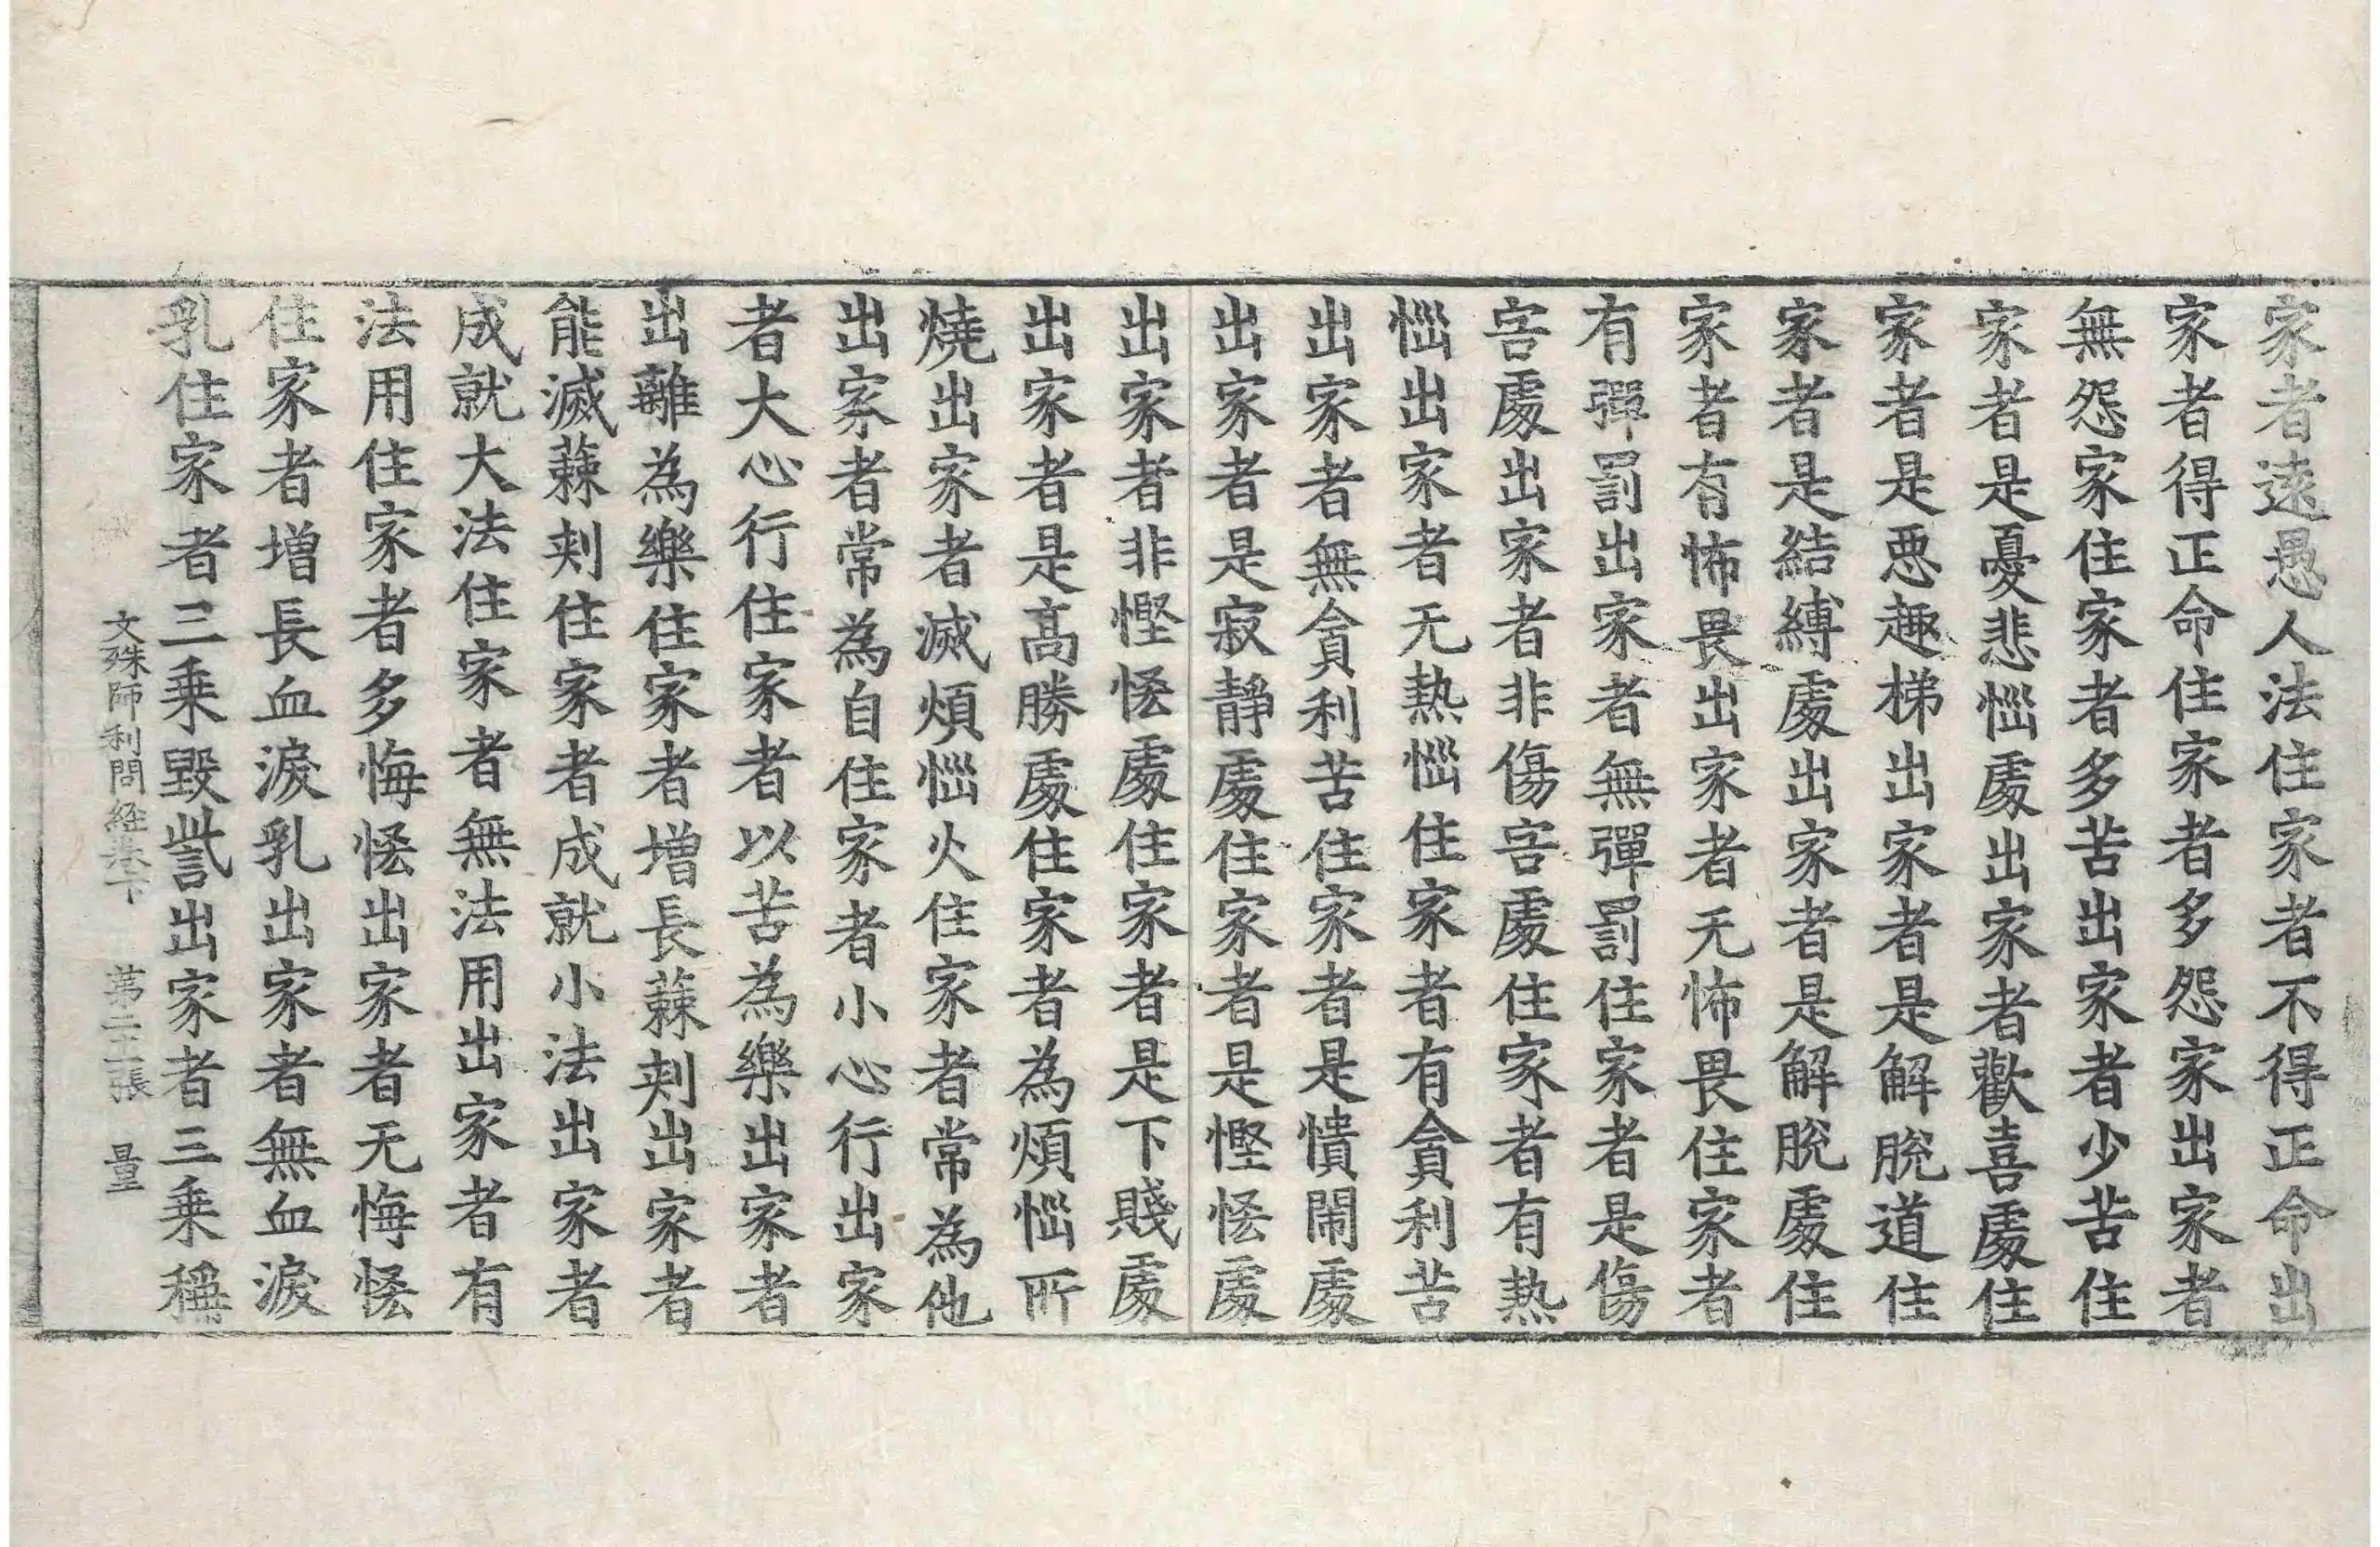 家者遠愚人法住家者不得正命出
家者得正命住家者多怨家出家者
無怨家住家者多苦出家者少苦住
家者是憂悲惱處出家者歡喜處住
家者是惡趣梯出家者是解脫道住
家者是結縛處出家者是解脫處住
家者有怖畏出家者无怖畏住家者
有彈罰出家者無彈罰住家者是傷
害處出家者非傷害處住家者有熱
惱出家者无熱惱住家者有貪利苦
出家者無貪利苦住家者是憒閙處
出家者是寂靜處住家者是慳悋處
出家者非慳悋處住家者是下賤處
出家者是髙勝處住家者為煩惱所
燒出家者滅煩惱火住家者常為他
出家者常為自住家者小心行出家
者大心行住家者以苦為樂出家者
出離為樂住家者增長蕀刾出家者
能滅蕀刾住家者成就小法出家者
成就大法住家者無法用出家者有
法用住家者多悔悋出家者无悔悋
住家者增長血淚乳出家者無血淚
乳住家者三乗毀訾出家者三乗稱
文殊師利問經卷下 苐二十二張 量